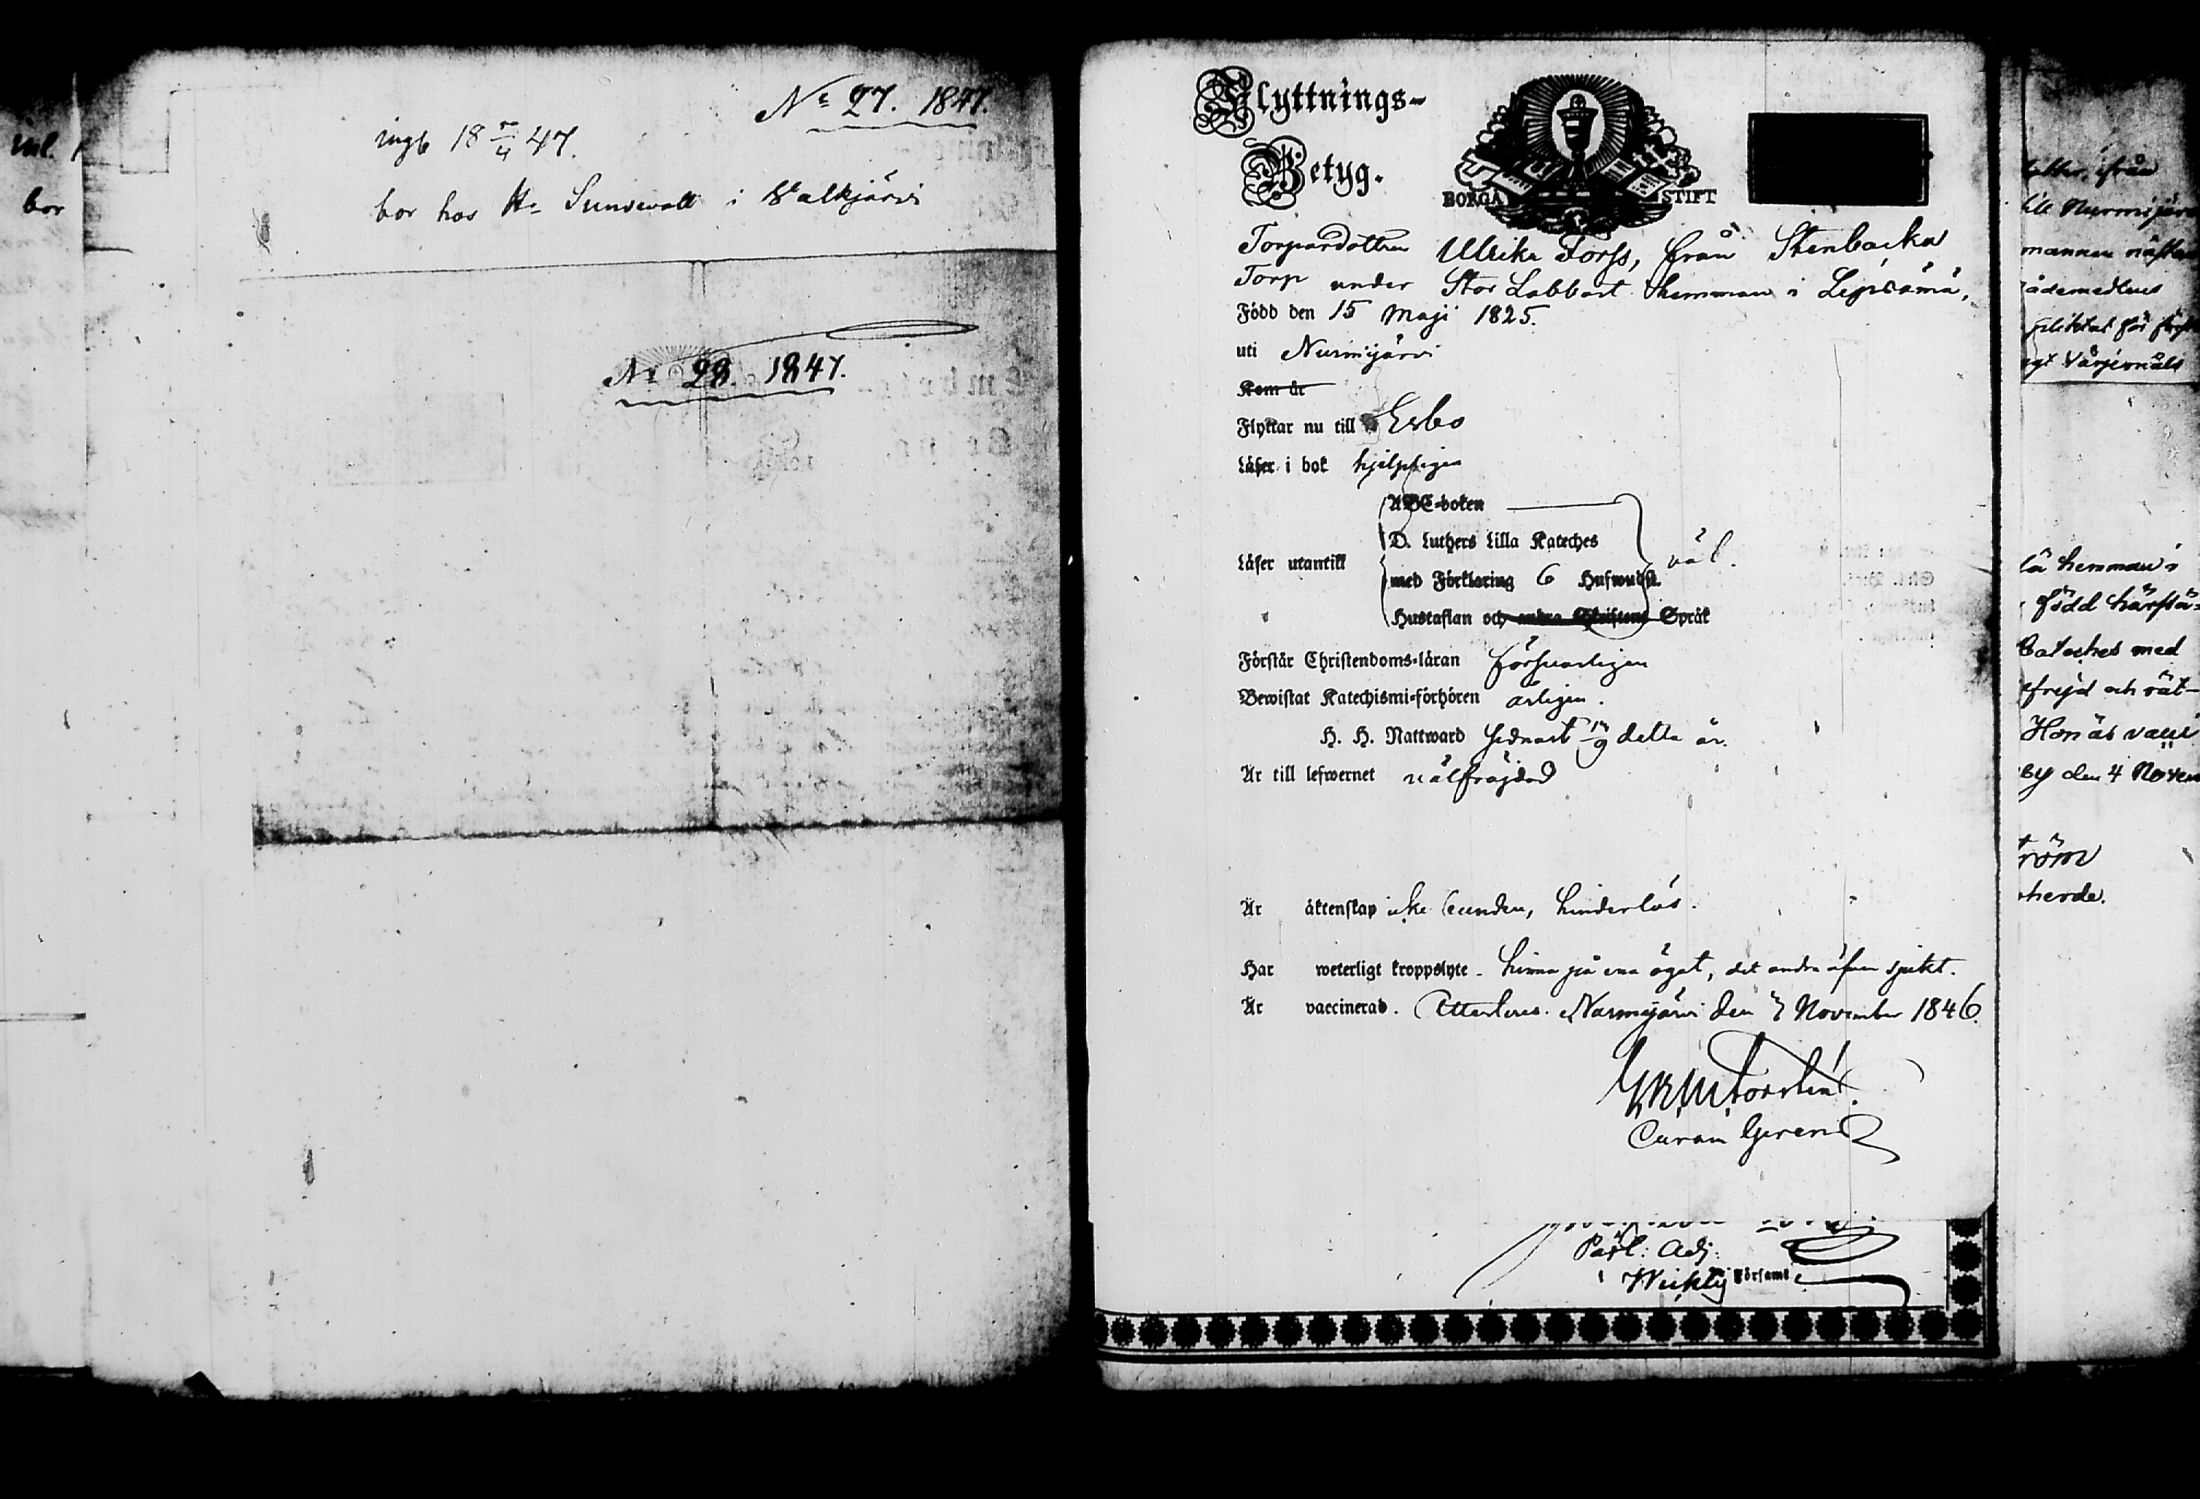 inl.
bor
No 27. 1847.
ingb 18 5/4 47.
bor hos Hr Sunswall i Walkjärvi
No 28. 1847.
Flyttnings-
Betyg.
BORGÅ STIFT
Torpardottren Ulrika Forss, från Stenbacka
Torp under Stor Labbart hemman i Lepsämä,
Född den 15 Maji 1825.
uti Nurmijärvi
Kom år
Flyttar nu till Esbo
Läser i bok hjelpligen
ABC-boken
D. Luthers Lilla Kateches
Läser utantill med Förklaring 6 Hufwudst. väl.
Hustaflan och andra Skriftens Språk
Förstår Christendoms-läran försvarligen
Bewistat Katechismi-förhören årligen.
H. H. Nattward sednast 13/9 detta år.
Är till lefwernet välfräjdad
Är äktenskap icke bunden, hinderlös.
Har weterligt kroppslyte - hinna på ena ögat, det andra äfven sjukt.
Är vaccinerad. Attesteras. Nurmijärvi den 7 November 1846.
Curam Gerens
Past: Adj.
i Wichtis Församl.
ifrån
till Nurmijärvi
mannen
hemman i
född härstä-
Cateches med
frejd och
Hon är
by den 4 Novem
röm
herde.